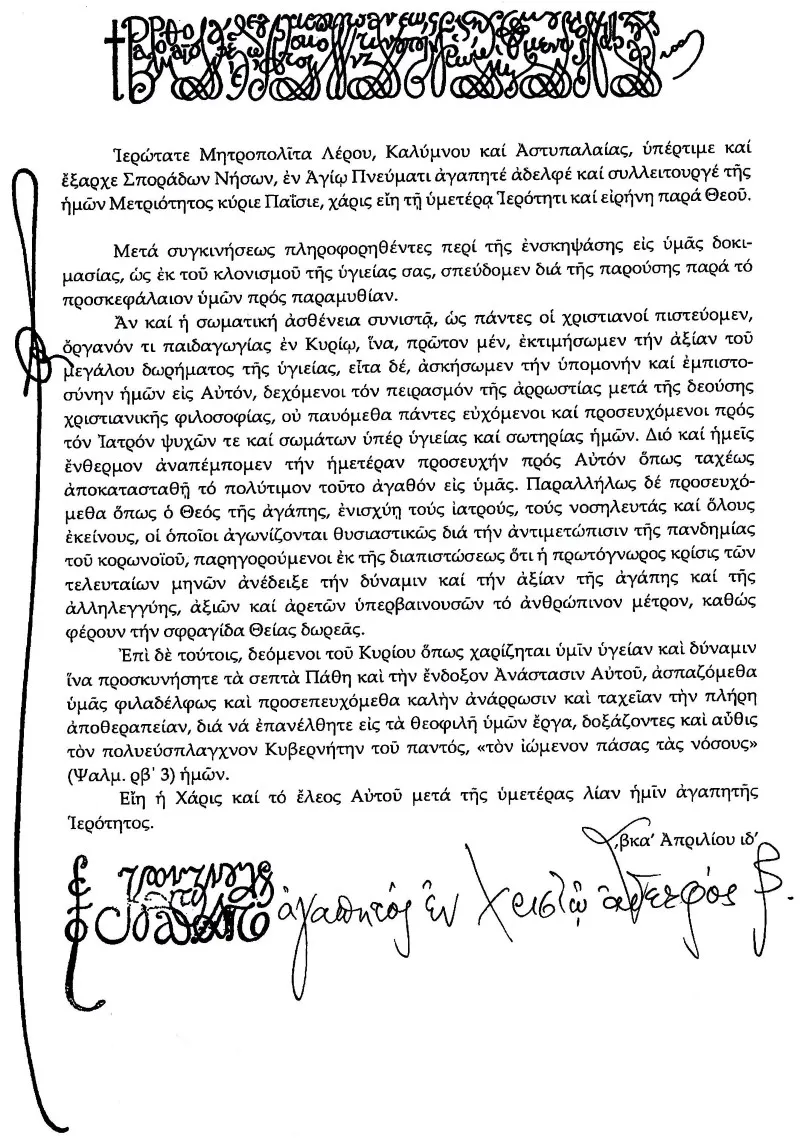 Ἱερώτατε Μητροπολῖτα Λέρου, Καλύμνου καί Ἀστυπαλαίας, ὑπέρτιμε καί
ἔξαρχε Σποράδων Νήσων, ἐν Ἁγίῳ Πνεύματι ἀγαπητέ ἀδελφέ καί συλλειτουργέ τῆς
ἡμῶν Μετριότητος κύριε Παΐσιε, χάρις εἴη τῇ ὑμετέρᾳ Ἱερότητι καί εἰρήνη παρά Θεοῦ.
Μετά συγκινήσεως πληροφορηθέντες περί τῆς ἐνσκηψάσης εἰς ὑμᾶς δοκι-
μασίας, ὡς ἐκ τοῦ κλονισμοῦ τῆς ὑγιείας σας, σπεύδομεν διά τῆς παρούσης παρά τό
προσκεφάλαιον ὑμῶν πρός παραμυθίαν.
Ἄν καί ἡ σωματική ἀσθένεια συνιστᾷ, ὡς πάντες οἱ χριστιανοί πιστεύομεν,
ὄργανόν τι παιδαγωγίας ἐν Κυρίῳ, ἵνα, πρῶτον μέν, ἐκτιμήσωμεν τήν ἀξίαν τοῦ
μεγάλου δωρήματος τῆς ὑγιείας, εἶτα δέ, ἀσκήσωμεν τήν ὑπομονήν καί ἐμπιστο-
σύνην ἡμῶν εἰς Αὐτόν, δεχόμενοι τόν πειρασμόν τῆς ἀρρωστίας μετά τῆς δεούσης
χριστιανικῆς φιλοσοφίας, οὐ παυόμεθα πάντες εὐχόμενοι καί προσευχόμενοι πρός
τόν Ἰατρόν ψυχῶν τε καί σωμάτων ὑπέρ ὑγιείας καί σωτηρίας ἡμῶν. Διό καί ἡμεῖς
ἔνθερμον ἀναπέμπομεν τήν ἡμετέραν προσευχήν πρός Αὐτόν ὅπως ταχέως
ἀποκατασταθῇ τό πολύτιμον τοῦτο ἀγαθόν εἰς ὑμᾶς. Παραλλήλως δέ προσευχό-
μεθα ὅπως ὁ Θεός τῆς ἀγάπης, ἐνισχύῃ τούς ἰατρούς, τούς νοσηλευτάς καί ὅλους
ἐκείνους, οἱ ὁποῖοι ἀγωνίζονται θυσιαστικῶς διά τήν ἀντιμετώπισιν τῆς πανδημίας
τοῦ κορωνοϊοῦ, παρηγορούμενοι ἐκ τῆς διαπιστώσεως ὅτι ἡ πρωτόγνωρος κρίσις τῶν
τελευταίων μηνῶν ἀνέδειξε τήν δύναμιν καί τήν ἀξίαν τῆς ἀγάπης καί τῆς
ἀλληλεγγύης, ἀξιῶν καί ἀρετῶν ὑπερβαινουσῶν τό ἀνθρώπινον μέτρον, καθώς
φέρουν τήν σφραγίδα Θείας δωρεᾶς.
Ἐπὶ δὲ τούτοις, δεόμενοι τοῦ Κυρίου ὅπως χαρίζηται ὑμῖν ὑγείαν καὶ δύναμιν
ἵνα προσκυνήσητε τὰ σεπτὰ Πάθη καὶ τὴν ἔνδοξον Ἀνάστασιν Αὐτοῦ, ἀσπαζόμεθα
ὑμᾶς φιλαδέλφως καὶ προσεπευχόμεθα καλὴν ἀνάρρωσιν καὶ ταχεῖαν τὴν πλήρη
ἀποθεραπείαν, διά νά ἐπανέλθητε εἰς τὰ θεοφιλῆ ὑμῶν ἔργα, δοξάζοντες καὶ αὖθις
τὸν πολυεύσπλαγχνον Κυβερνήτην τοῦ παντός, «τὸν ἰώμενον πάσας τὰς νόσους»
(Ψαλμ. ρβ' 3) ἡμῶν.
Εἴη ἡ Χάρις καί τό ἔλεος Αὐτοῦ μετά τῆς ὑμετέρας λίαν ἡμῖν ἀγαπητῆς
Ἱερότητος.
͵βκα' Ἀπριλίου ιδ'
ἀγαπητὸς ἐν Χριστῷ ἀδελφός